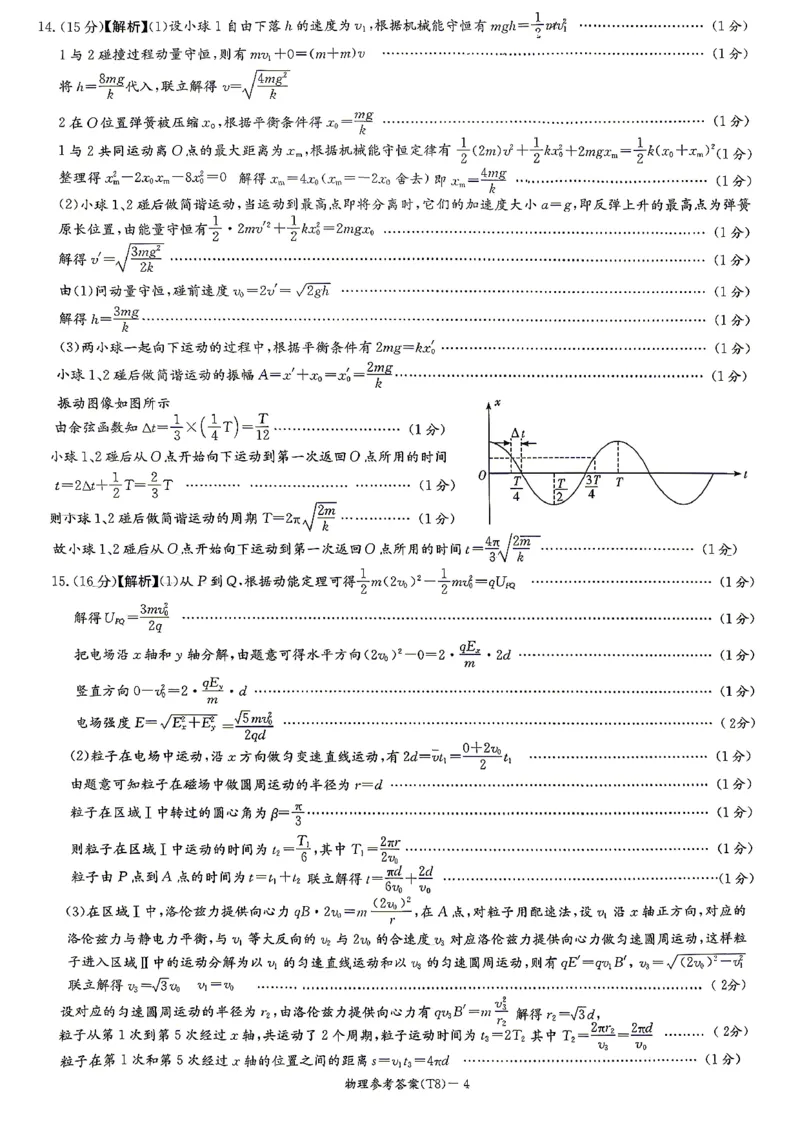 14.(15分)【解析】(1)设小球1自由下落h的速度为v₁,根据机械能守恒有mgh=\frac{1}{2}mv₁² ……………………(1分)
1与2碰撞过程动量守恒,则有mv₁+0=(m+m)v ……………………(1分)
将h=\frac{8mg}{k}代入,联立解得v=\sqrt{\frac{4mg²}{k}}
2在O位置弹簧被压缩x₀,根据平衡条件得x₀=\frac{mg}{k} ……………………(1分)
1与2共同运动离O点的最大距离为xₘ,根据机械能守恒定律有\frac{1}{2}(2m)v²+\frac{1}{2}kx₀²+2mgxₘ=\frac{1}{2}k(x₀+xₘ)²(1分)
整理得xₘ²-2x₀xₘ-8x₀²=0 解得xₘ=4x₀(xₘ=-2x₀舍去)即xₘ=\frac{4mg}{k} ……………………(1分)
(2)小球1、2碰后做简谐运动,当运动到最高点即将分离时,它们的加速度大小a=g,即反弹上升的最高点为弹簧
原长位置,由能量守恒有\frac{1}{2}·2mv'²+\frac{1}{2}kx₀²=2mgx₀ ……………………(1分)
解得v'=\sqrt{\frac{3mg²}{2k}} ……………………(1分)
由(1)问动量守恒,碰前速度v₀=2v'=\sqrt{2gh} ……………………(1分)
解得h=\frac{3mg}{k} ……………………(1分)
(3)两小球一起向下运动的过程中,根据平衡条件有2mg=kx₀' ……………………(1分)
小球1、2碰后做简谐运动的振幅A=x'+x₀=x₀'=\frac{2mg}{k} ……………………(1分)
振动图像如图所示
由余弦函数知Δt=\frac{1}{3}×(\frac{1}{4}T)=\frac{T}{12} ……………………(1分)
小球1、2碰后从O点开始向下运动到第一次返回O点所用的时间
t=2Δt+\frac{1}{2}T=\frac{2}{3}T ……………………(1分)
则小球1、2碰后做简谐运动的周期T=2π\sqrt{\frac{2m}{k}} ……………………(1分)
x
Δt
O \frac{T}{4} \frac{T}{2} \frac{3T}{4} T t
故小球1、2碰后从O点开始向下运动到第一次返回O点所用的时间t=\frac{4π}{3}\sqrt{\frac{2m}{k}} ……………………(1分)
15.(16分)【解析】(1)从P到Q,根据动能定理可得\frac{1}{2}m(2v₀)²-\frac{1}{2}mv₀²=qU_{PQ} ……………………(1分)
解得U_{PQ}=\frac{3mv₀²}{2q} ……………………(1分)
把电场沿x轴和y轴分解,由题意可得水平方向(2v₀)²-0=2·\frac{qEₓ}{m}·2d ……………………(1分)
竖直方向0-v₀²=2·\frac{qE_y}{m}·d ……………………(1分)
电场强度E=\sqrt{Eₓ²+E_y²}=\frac{\sqrt{5}mv₀²}{2qd} ……………………(2分)
(2)粒子在电场中运动,沿x方向做匀变速直线运动,有2d=\bar{v}t₁=\frac{0+2v₀}{2}t₁ ……………………(1分)
由题意可知粒子在磁场中做圆周运动的半径为r=d ……………………(1分)
粒子在区域Ⅰ中转过的圆心角为β=\frac{π}{3} ……………………(1分)
则粒子在区域Ⅰ中运动的时间为t₂=\frac{T₁}{6},其中T₁=\frac{2πr}{2v₀} ……………………(1分)
粒子由P点到A点的时间为t=t₁+t₂ 联立解得t=\frac{πd}{6v₀}+\frac{2d}{v₀} ……………………(1分)
(3)在区域Ⅰ中,洛伦兹力提供向心力qB·2v₀=m\frac{(2v₀)²}{r},在A点,对粒子用配速法,设v₁沿x轴正方向,对应的
洛伦兹力与静电力平衡,与v₁等大反向的v₂与2v₀的合速度v₃对应洛伦兹力提供向心力做匀速圆周运动,这样粒
子进入区域Ⅱ中的运动分解为以v₁的匀速直线运动和以v₃的匀速圆周运动,则有qE'=qv₁B',v₃=\sqrt{(2v₀)²-v₁²}
联立解得v₃=\sqrt{3}v₀ v₁=v₀ ……………………(2分)
设对应的匀速圆周运动的半径为r₂,由洛伦兹力提供向心力有qv₃B'=m\frac{v₃²}{r₂} 解得r₂=\sqrt{3}d,
粒子从第1次到第5次经过x轴,共运动了2个周期,粒子运动时间为t₃=2T₂其中T₂=\frac{2πr₂}{v₃}=\frac{2πd}{v₀} ………(2分)
粒子在第1次和第5次经过x轴的位置之间的距离s=v₁t₃=4πd ……………………(1分)
物理参考答案(T8)-4